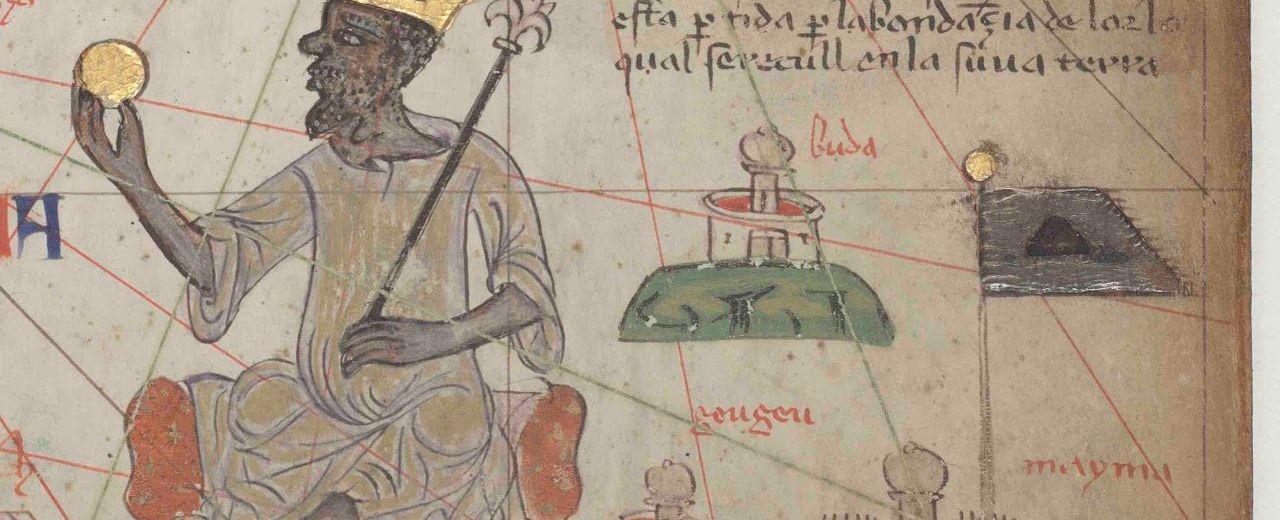 esta ptida p labondaçia de lor lo
qual se recull en la suua terra
buda
geugeu
mayma